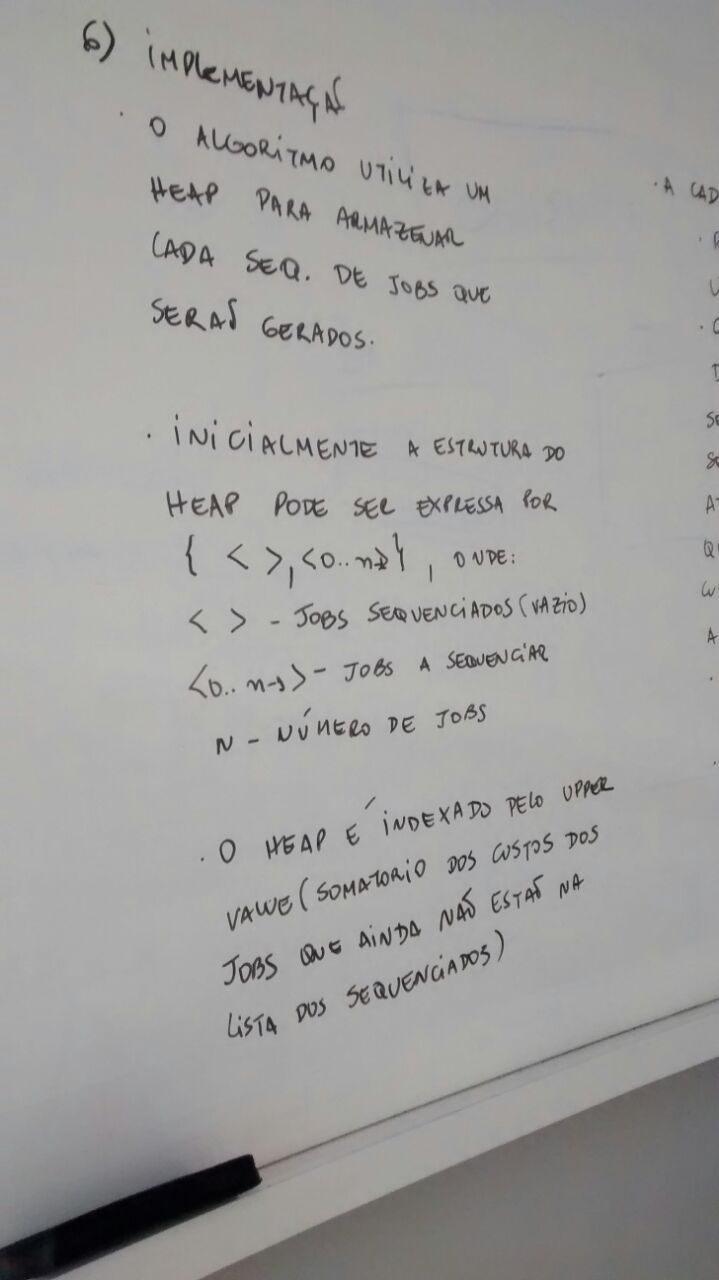 6) IMPLEMENTAÇÃO
· O ALGORITMO UTILIZA UM
HEAP PARA ARMAZENAR
CADA SEQ. DE JOBS QUE
SERÃO GERADOS.
· INICIALMENTE A ESTRUTURA DO
HEAP PODE SER EXPRESSA POR
{ < >, <0..n-1>}, ONDE:
< > - JOBS SEQUENCIADOS (VAZIO)
<0..n-1> - JOBS A SEQUENCIAR
N - NÚMERO DE JOBS
· O HEAP É INDEXADO PELO UPPER
VALUE (SOMATORIO DOS CUSTOS DOS
JOBS QUE AINDA NÃO ESTÃO NA
LISTA DOS SEQUENCIADOS)
· A CAD